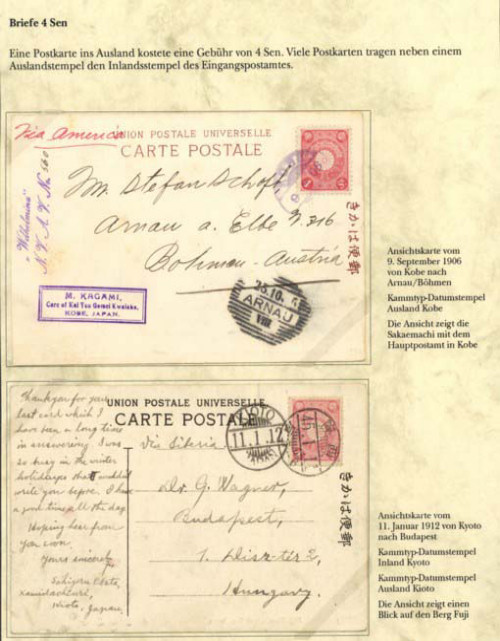 Briefe 4 Sen
Eine Postkarte ins Ausland kostete eine Gebühr von 4 Sen. Viele Postkarten tragen neben einem
Auslandstempel den Inlandsstempel des Eingangspostamtes.
Via America
UNION POSTALE UNIVERSELLE
CARTE POSTALE
"Wilhelmina"
N. V. A. V. No 560
Stefan Schoft
Arnau a. Elbe N. 316
Böhmen-Austria
きかは便郵
M. KAGAMI,
KOBE, JAPAN.
ARNAU
Ansichtskarte vom
9. September 1906
von Kobe nach
Arnau/Böhmen
Kammtyp-Datumstempel
Ausland Kobe
Die Ansicht zeigt die
Sakaemachi mit dem
Hauptpostamt in Kobe
UNION POSTALE UNIVERSELLE
CARTE POSTALE
KIOTO
11.1.12
Thank you for your
last card which I
have been a long time
in answering. I was
so busy in the winter
holidays that
write you before. I have
a good time all the day.
Hoping hear from
you soon
Yours sincerely
Kioto, Japan.
Via Siberia
Dr. G. Wagner,
Budapest,
1. Disz-tér 2,
Hungary.
きかは便郵
Ansichtskarte vom
11. Januar 1912 von Kyoto
nach Budapest
Kammtyp-Datumstempel
Inland Kyoto
Kammtyp-Datumstempel
Ausland Kioto
Die Ansicht zeigt einen
Blick auf den Berg Fuji